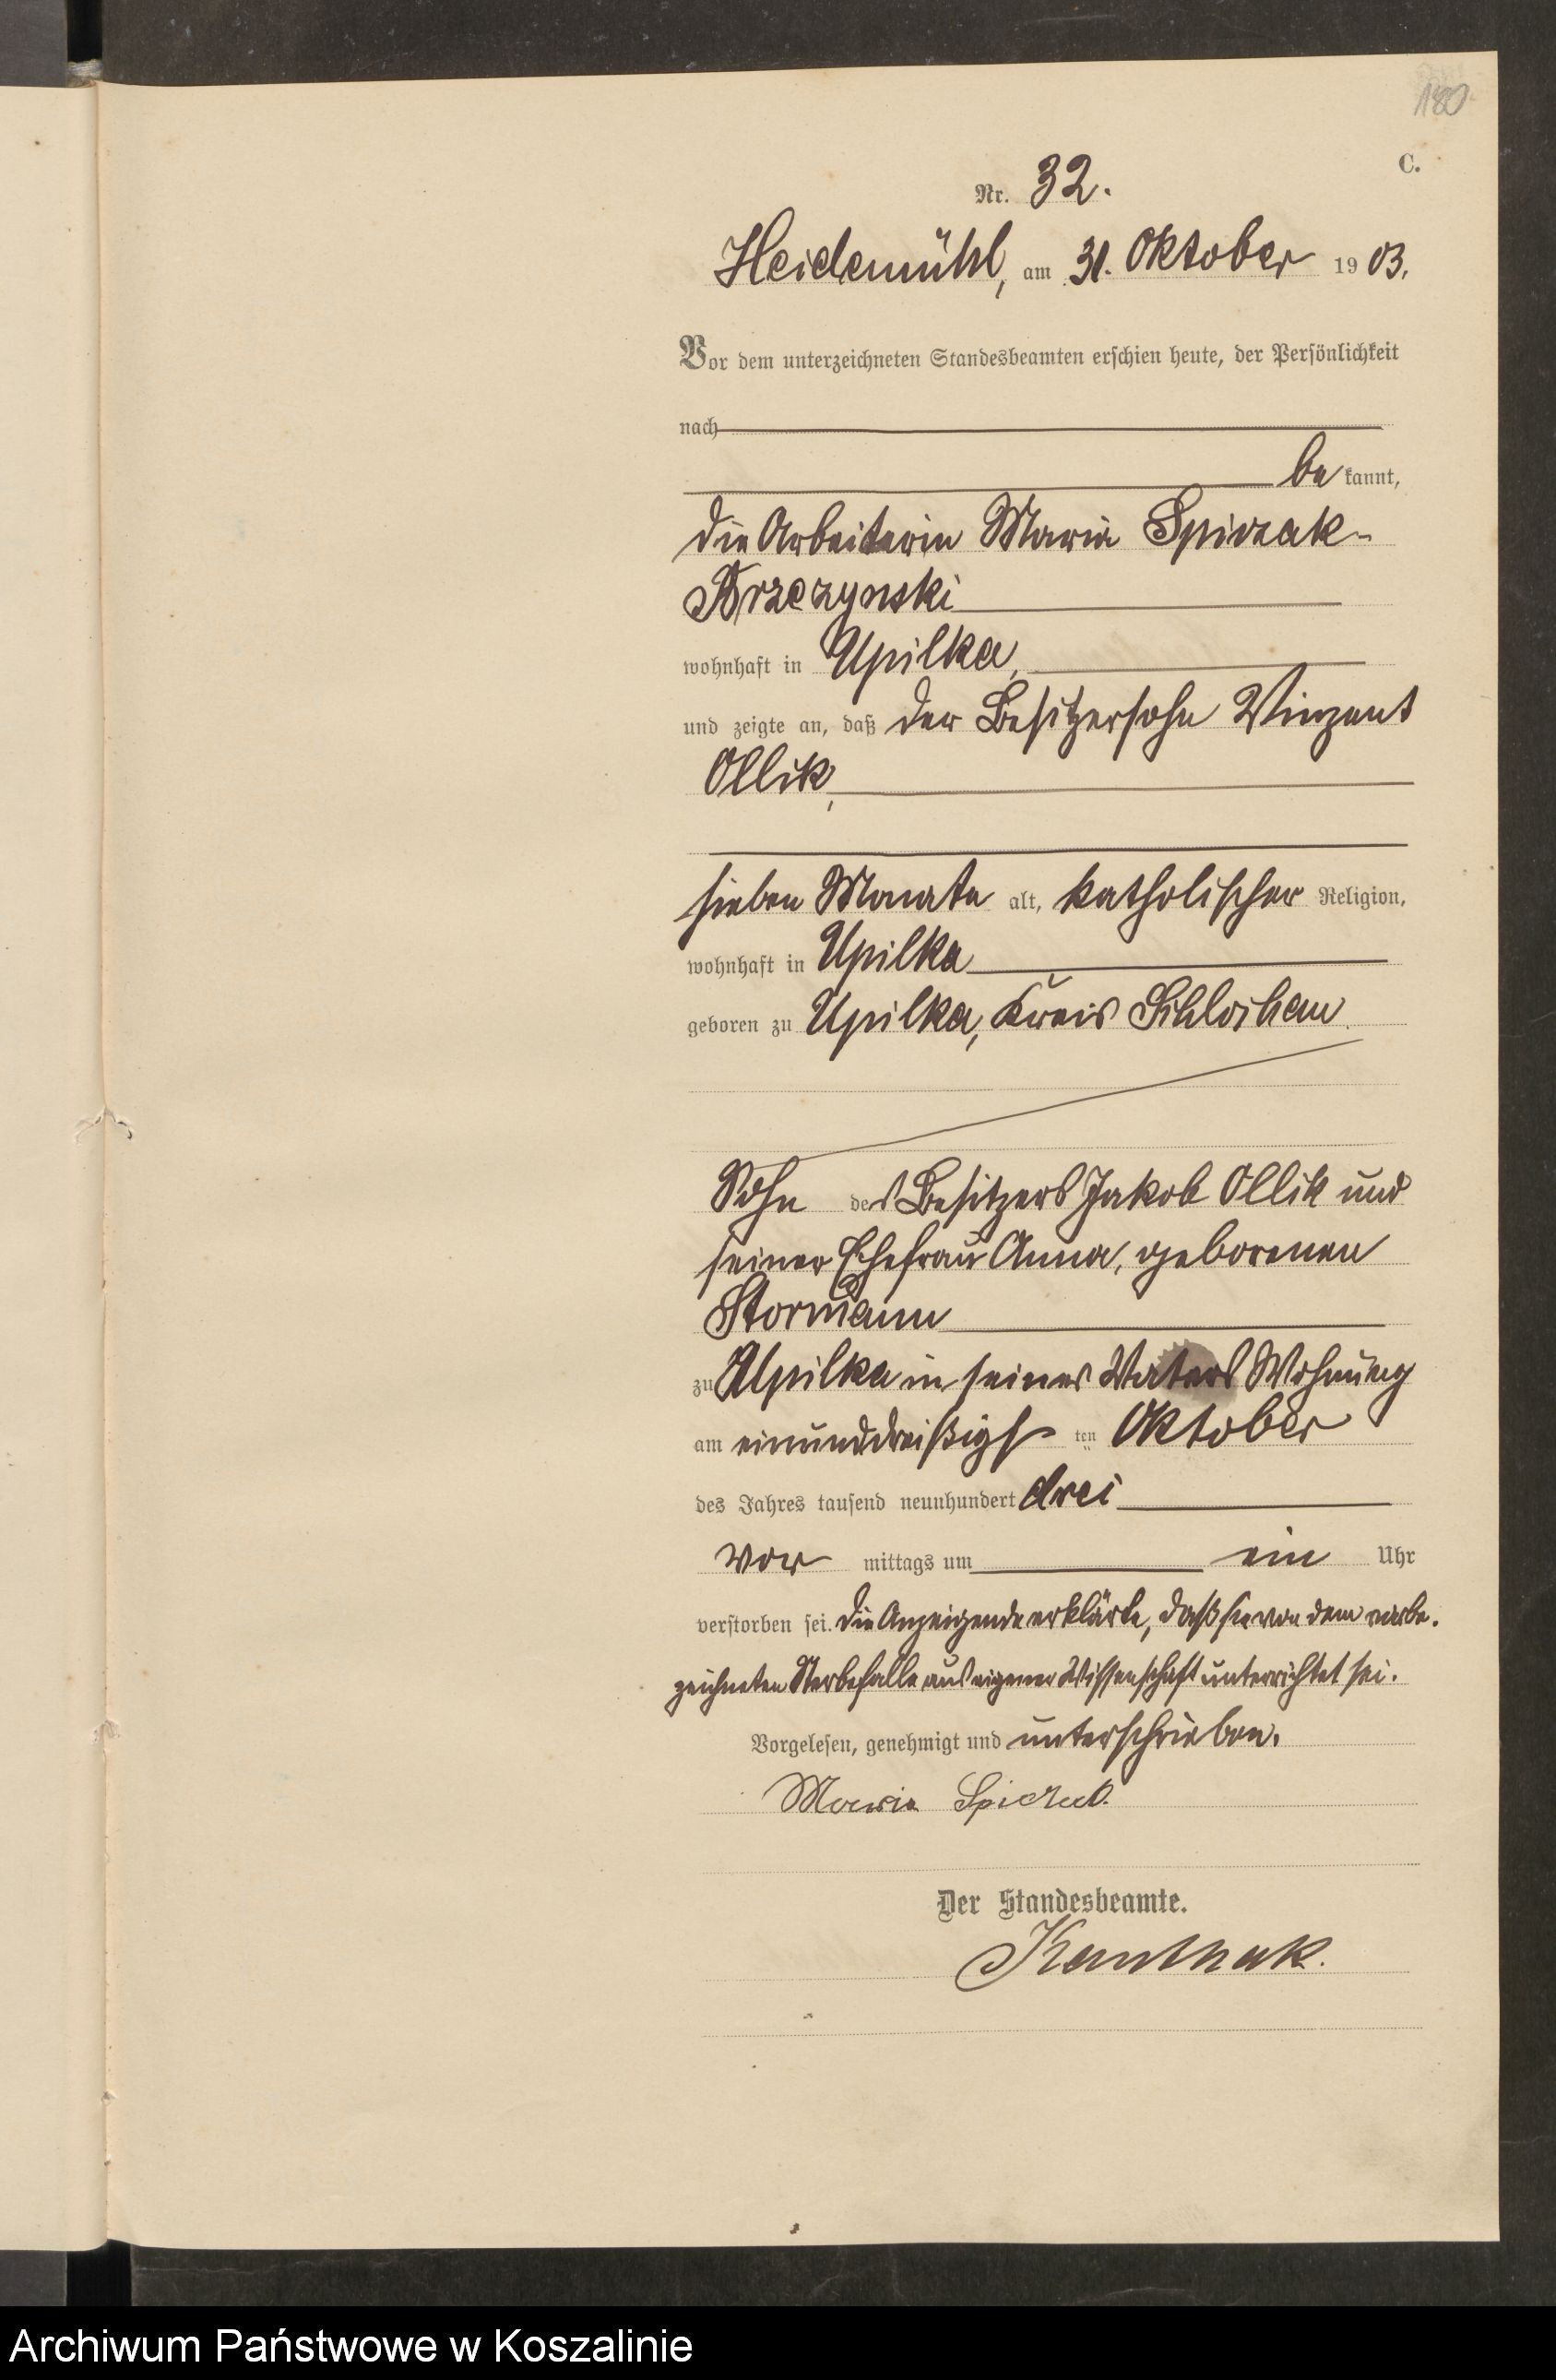 180
C.
Nr. 32.
Heidemühl, am 31. Oktober 1903.
Vor dem unterzeichneten Standesbeamten erschien heute, der Persönlichkeit
nach
bekannt,
die Arbeiterin Maria Spiczak-
Brzezynski
wohnhaft in Upilka,
und zeigte an, daß der Besitzersohn Vinzent
Ollik,
sieben Monate alt, katholischer Religion,
wohnhaft in Upilka
geboren zu Upilka, Kreis Schlochau
Sohn des Besitzers Jakob Ollik und
seiner Ehefrau Anna, geborenen
Stormann
zu Upilka in seines Vaters Wohnung
am einunddreißigsten Oktober
des Jahres tausend neunhundert drei
vor mittags um ein Uhr
verstorben sei. Die Anzeigende erklärte, daß sie von dem vorbe-
zeichneten Sterbefalle aus eigener Wissenschaft unterrichtet sei.
Vorgelesen, genehmigt und unterschrieben.
Maria Spiczak.
Der Standesbeamte.
Kanthak.
Archiwum Państwowe w Koszalinie